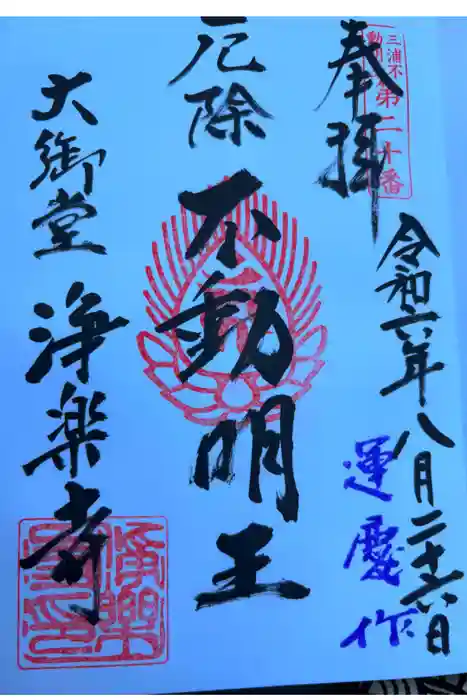 奉拝
三浦不動明
第二十番
令和六年八月二十六日
運慶作
厄除
不動明王
大御堂
浄楽寺